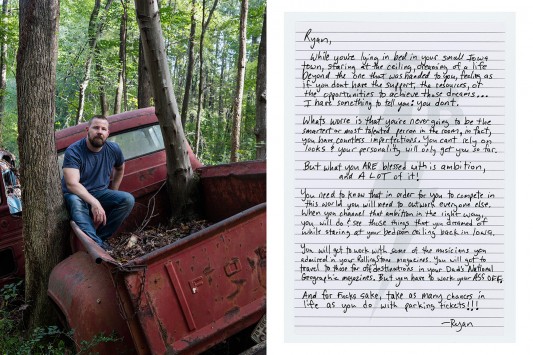 Ryan,
While you're lying in bed in your small Iowa
town, staring at the ceiling, dreaming of a life
beyond the one that was handed to you, feeling as
if you dont have the support, the resources, or
the opportunities to achieve those dreams...
I have something to tell you: you dont.
Whats worse is that you're never going to be the
smartest or most talented person in the room, in fact,
you have countless imperfections. You cant rely on
looks & your personality will only get you so far.
But what you ARE blessed with is ambition,
and A LOT of it!
You need to know that in order for you to compete in
this world you will need to outwork everyone else.
When you channel that ambition in the right way,
you will do & see those things that you dreamed of
while staring at your bedroom ceiling back in Iowa.
You will get to work with some of the musicians you
admired in your Rolling Stone magazines. You will get to
travel to those far off destinations in your Dad's National
Geographic magazines. But you have to work your ASS OFF.
And for fucks sake, take as many chances in
life as you do with parking tickets!!!
-Ryan